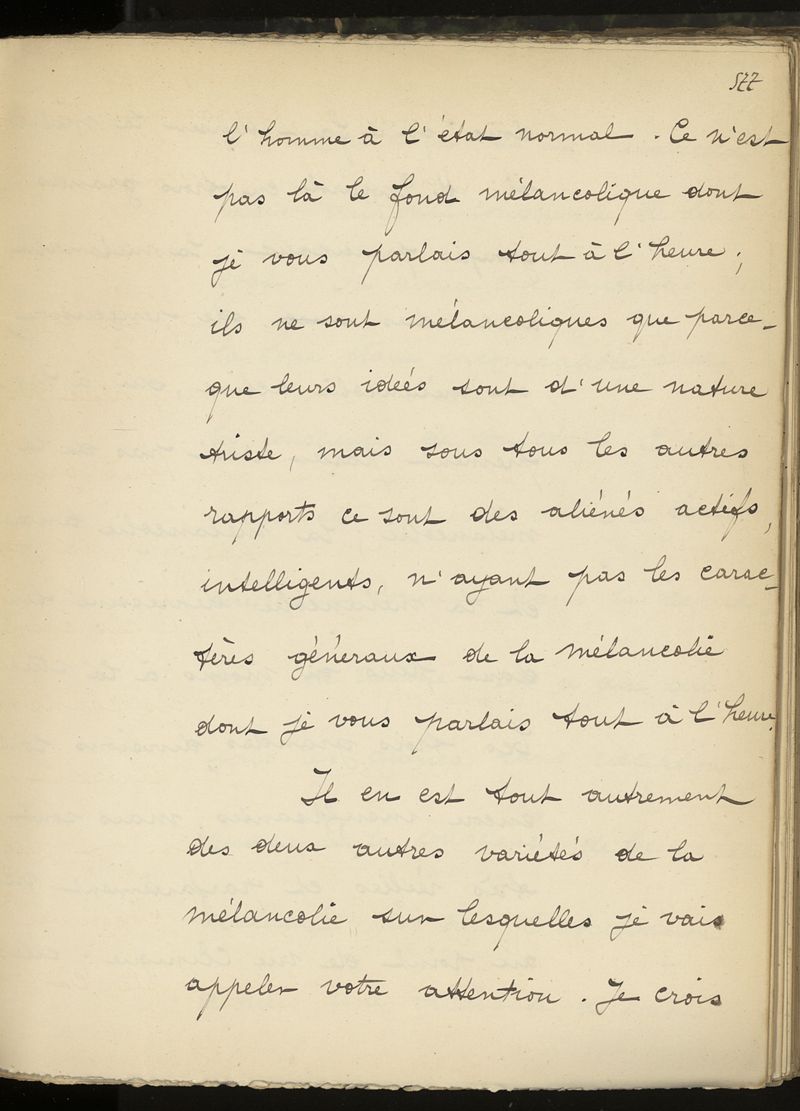 577
l'homme à l'état normal. Ce n'est
pas là le fond mélancolique dont
je vous parlais tout à l'heure;
ils ne sont mélancoliques que parce-
que leurs idées sont d'une nature
triste, mais sous tous les autres
rapports ce sont des aliénés actifs,
intelligents, n'ayant pas les carac-
tères généraux de la mélancolie
dont je vous parlais tout à l'heure.
Il en est tout autrement
des deux autres variétés de la
mélancolie sur lesquelles je vais
appeler votre attention. Je crois